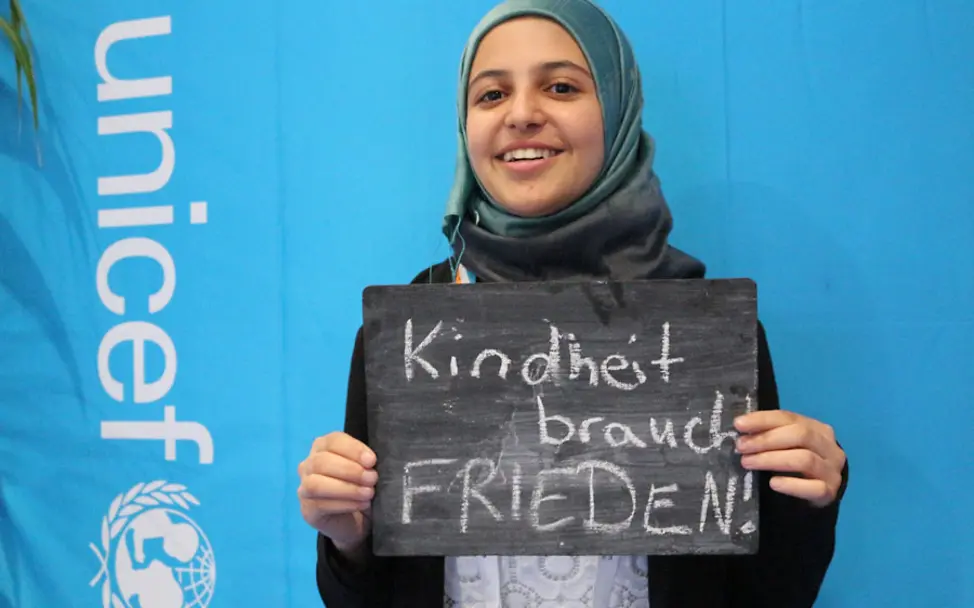 unicef
Kindheit
brauch
FRIEDEN!